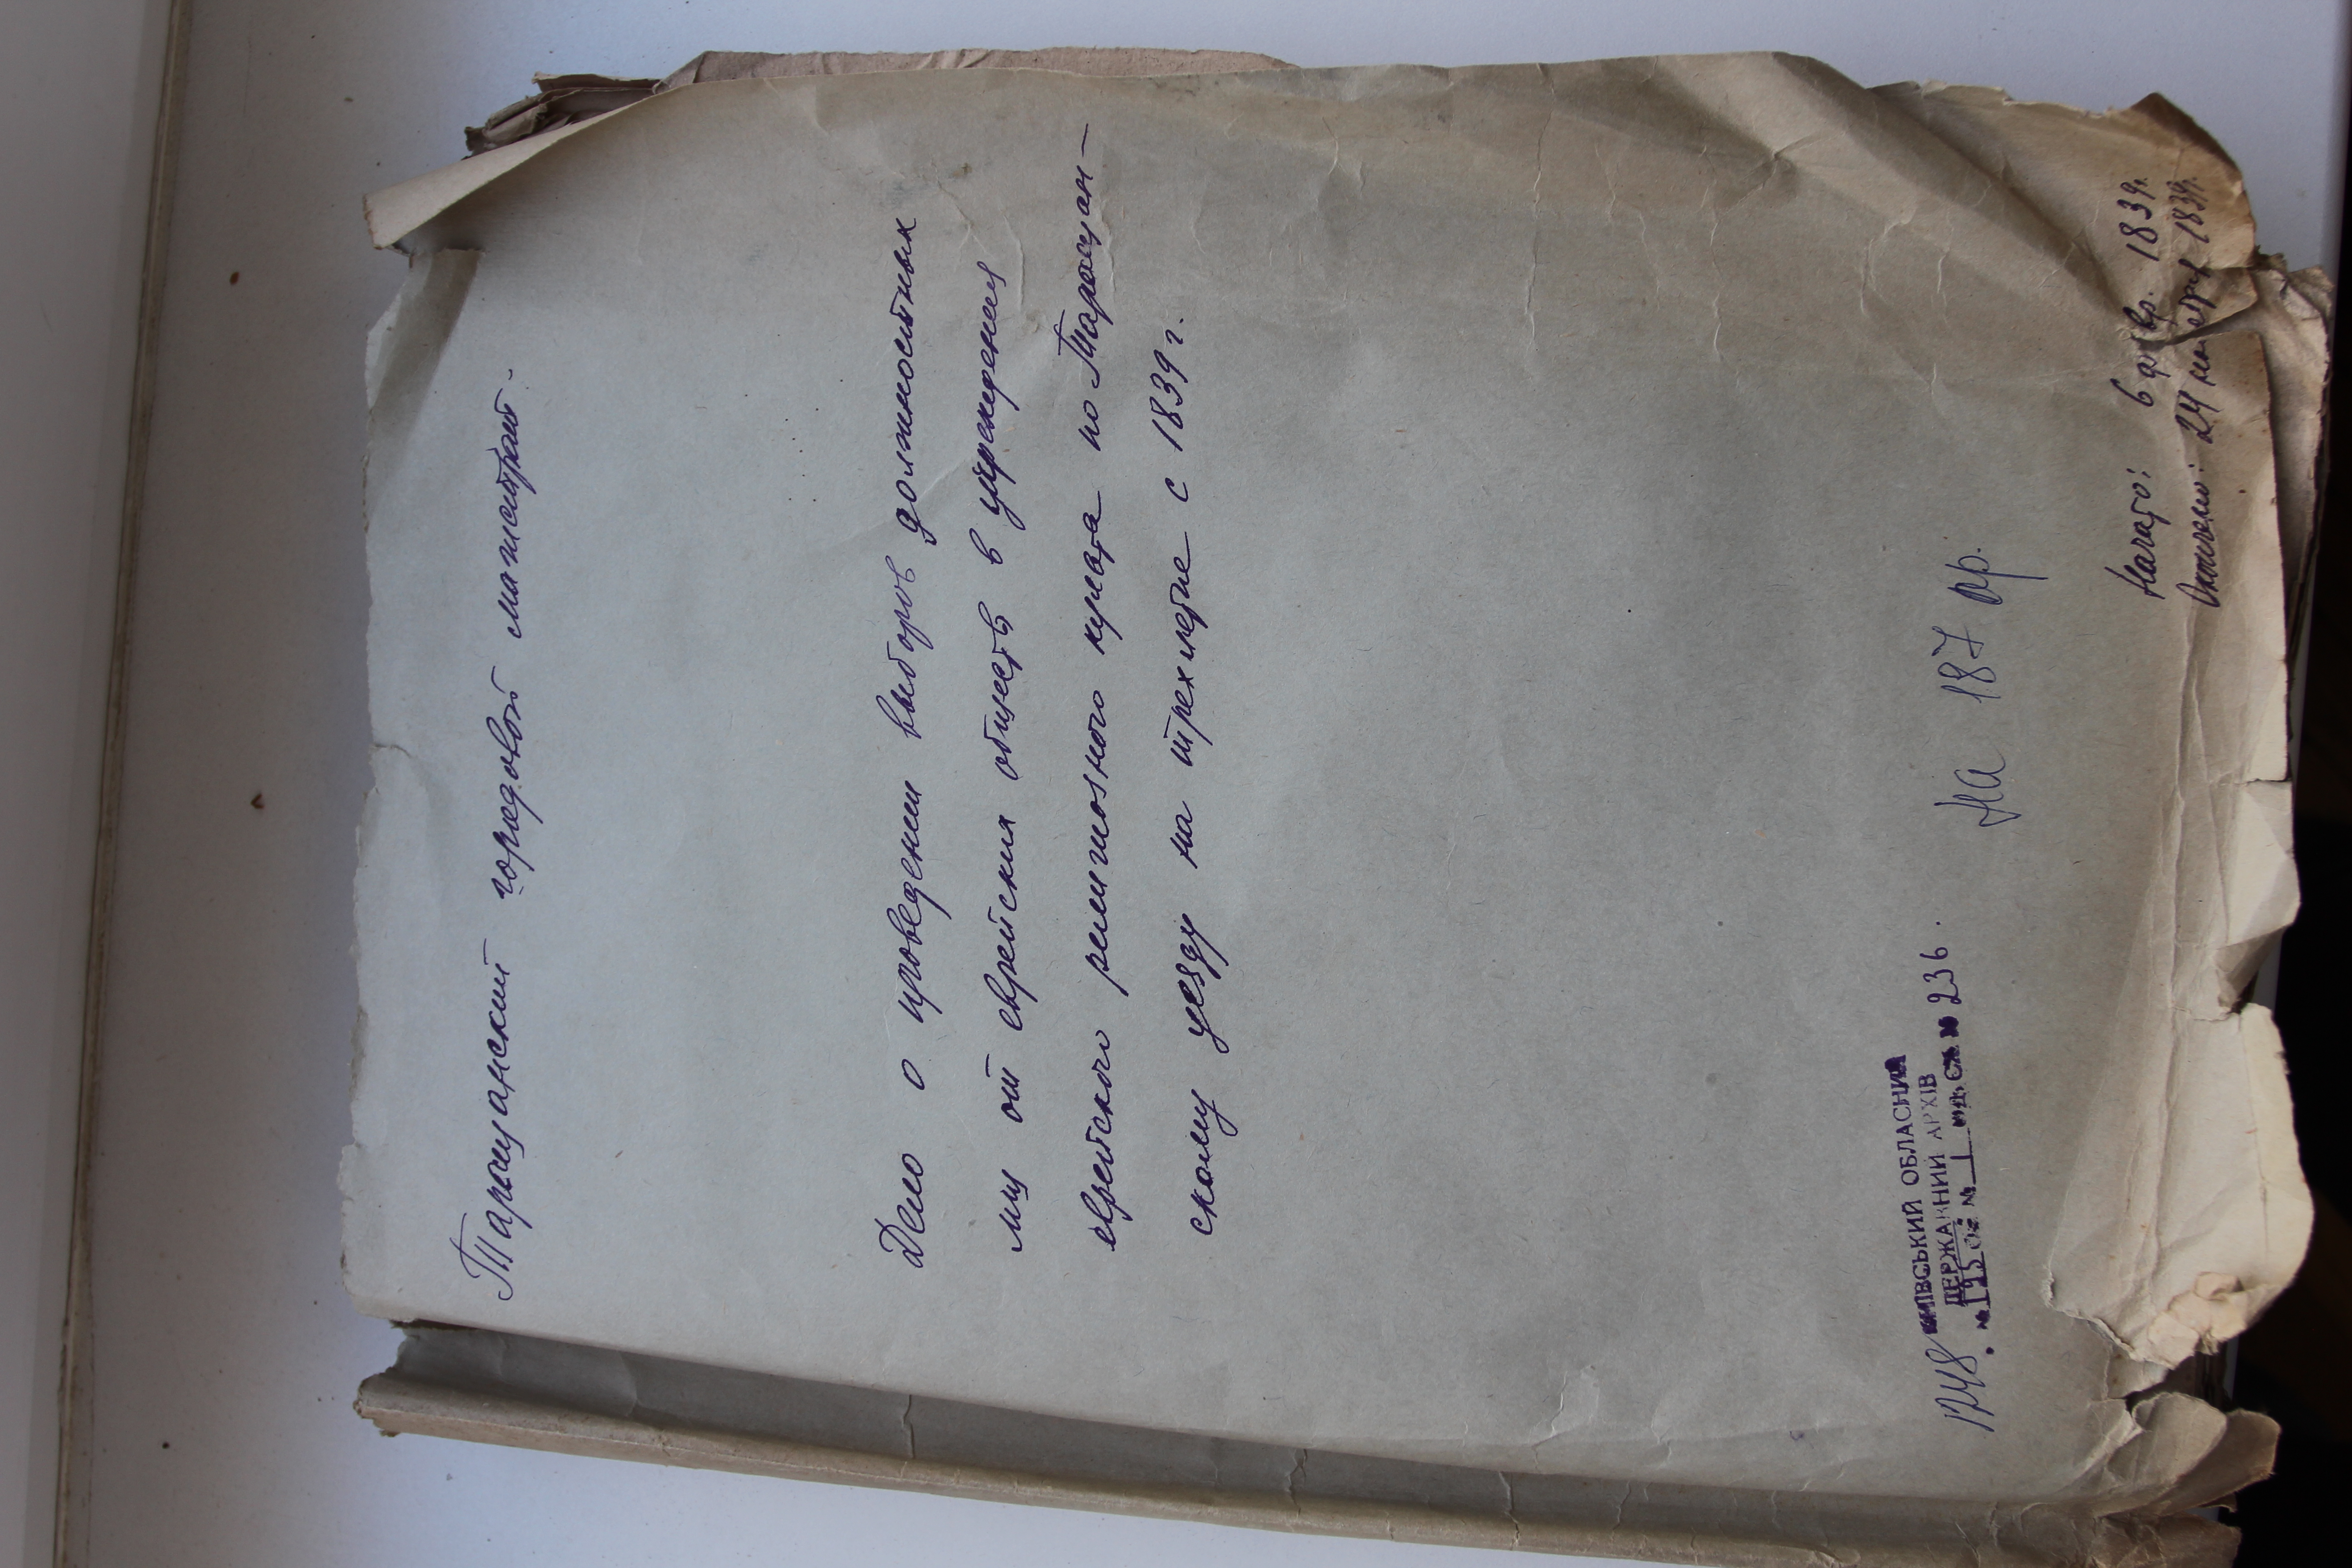 Таращанский городовой магистрат.
Дело о проведении выборов должностных
лиц от еврейских обществ в учреждения
еврейского религиозного культа по Таращан-
скому уезду на трехлетие с 1839 г.
Начато: 6 февр. 1839г.
Окончено: 24 ноября 1839г.
На 187 ар.
1248
КИЇВСЬКИЙ ОБЛАСНИЙ
ДЕРЖАВНИЙ АРХІВ
№ 1 од. сх. № 236.